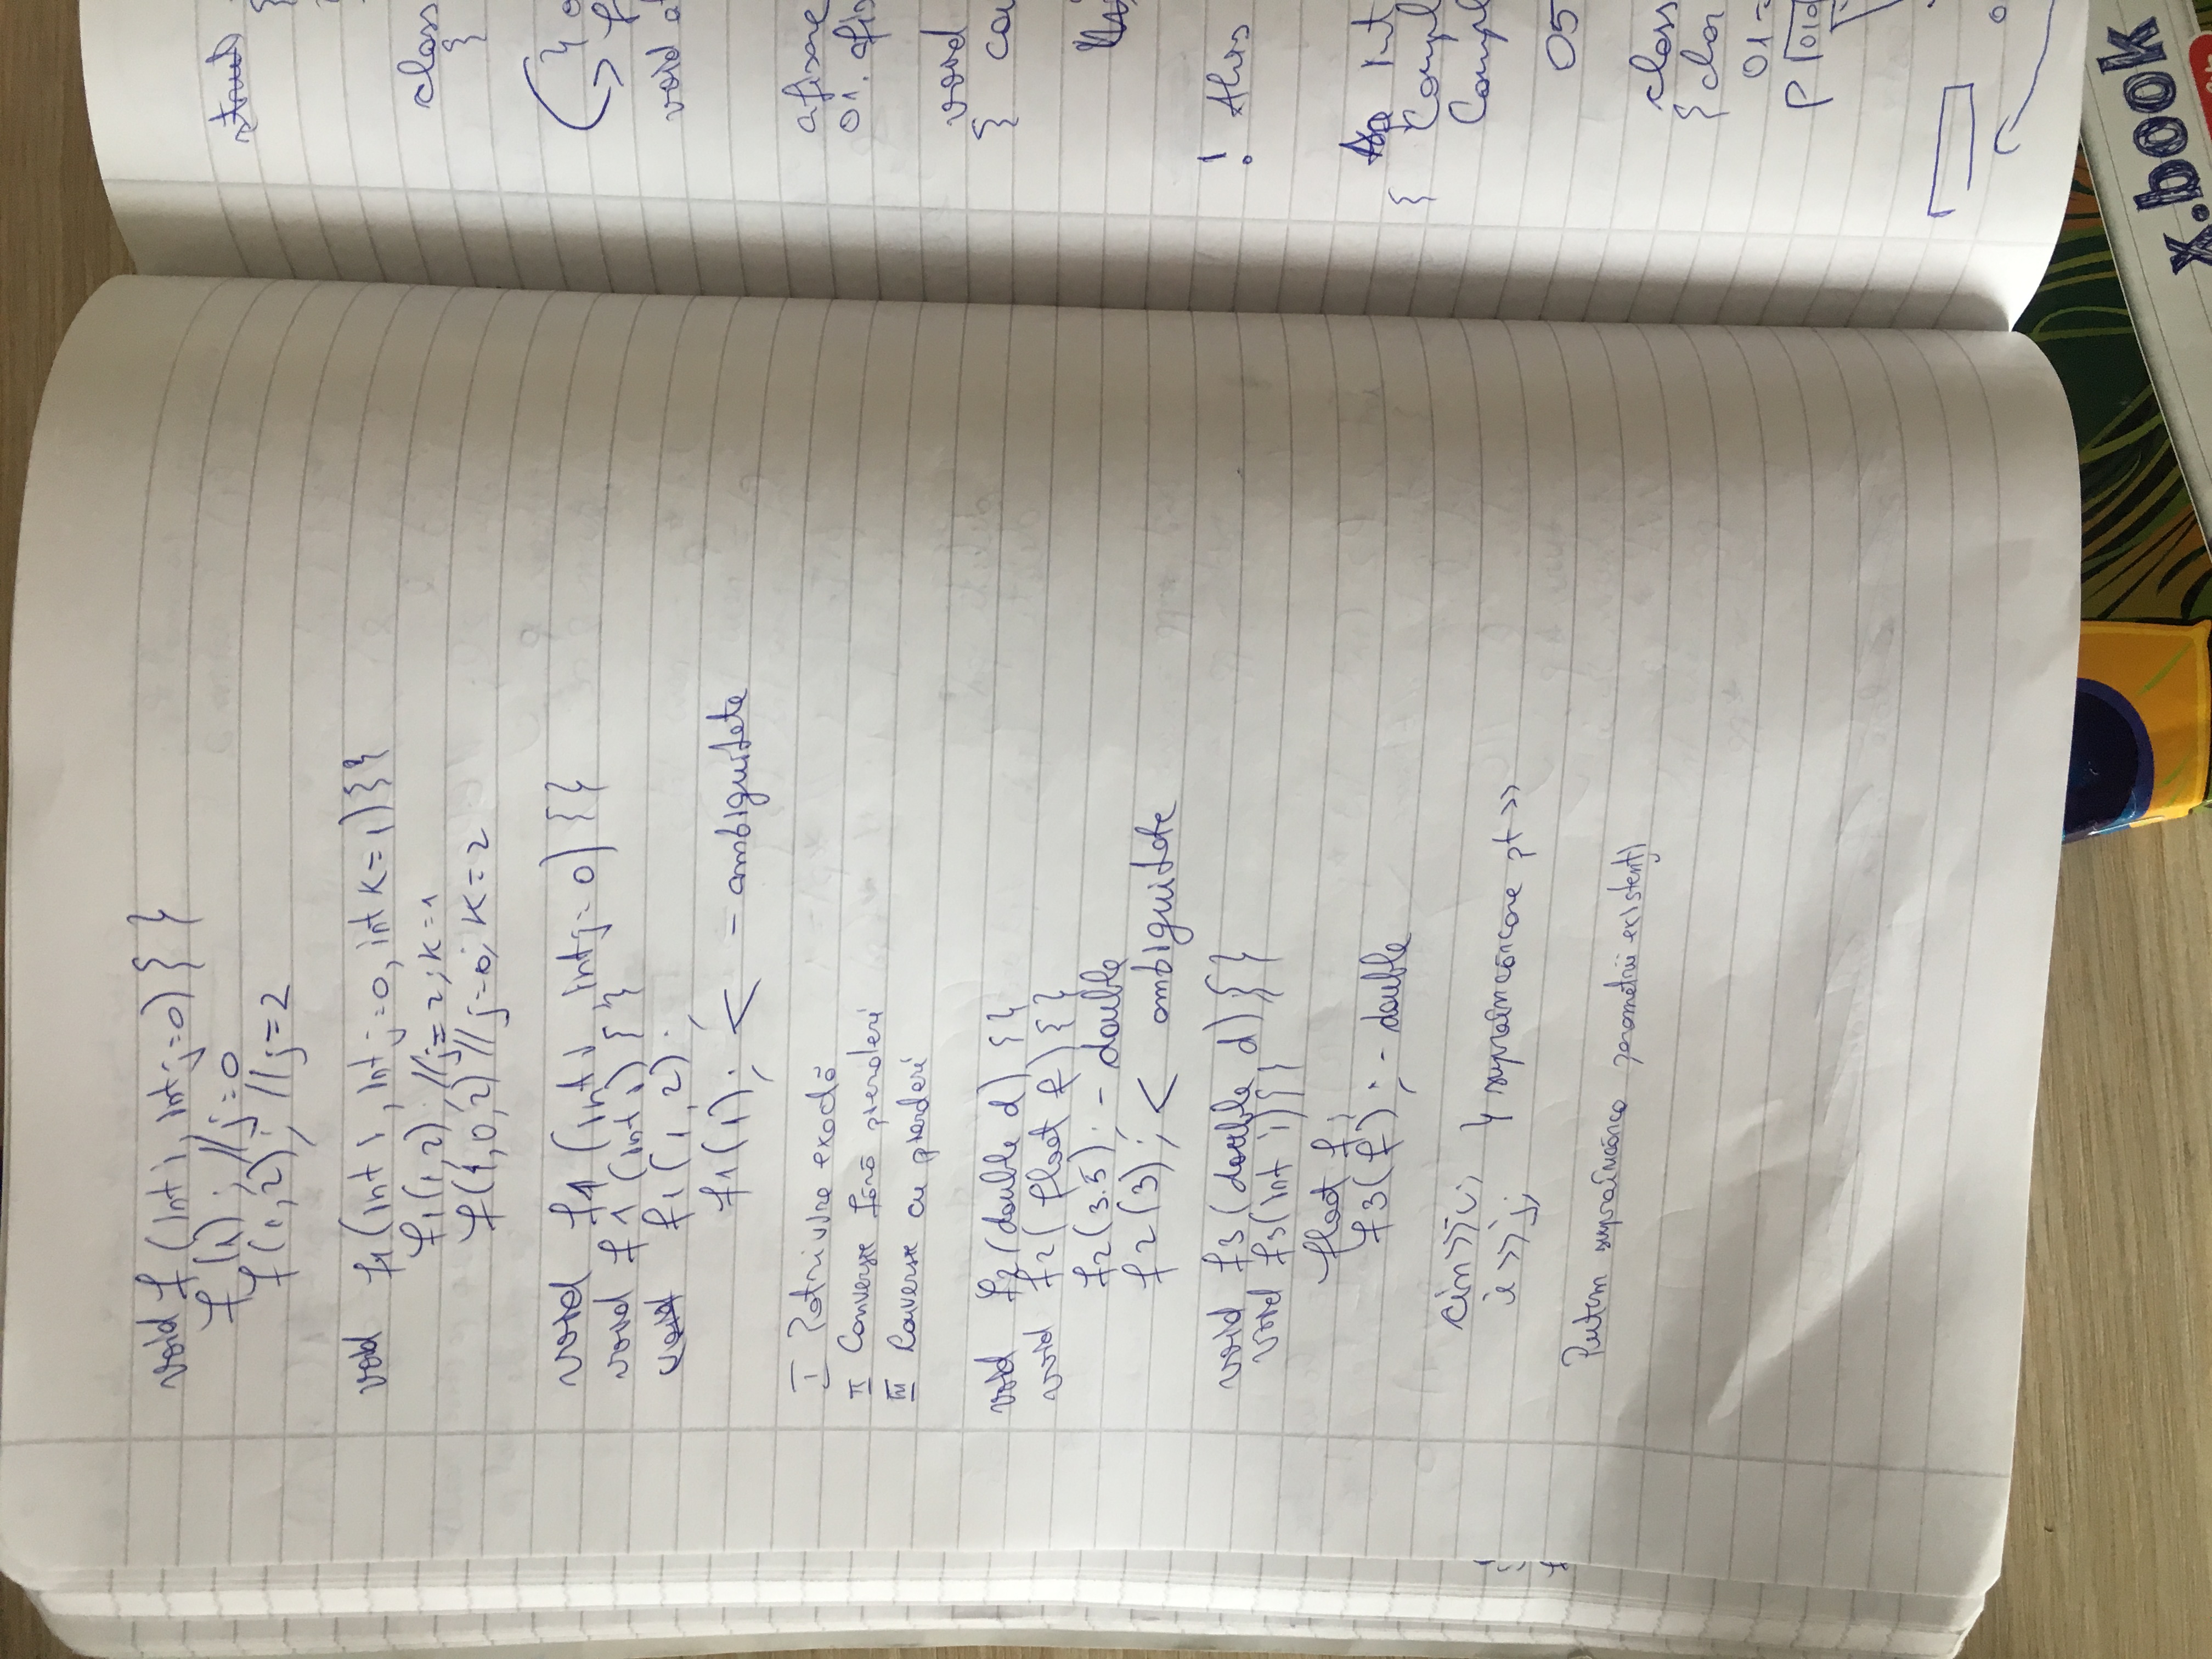 void f (int i, int j=0) { }
f (1) ; //j=0
f (1,2) ; //j=2
void f1 (int i, int j=0, int k=1){}
f1(1,2) ; //j=2; k=1
f(1,0,2) //j=0; k=2
void f1 (int i, int j=0) {}
void f1 (int i) { }
void f1 (1,2) ;
f1(1) ; < - ambiguitate
I Potrivire exactă
II Conversie fără pierderi
III Conversie cu pierderi
void f2(double d) {}
void f2( float f) {}
f2(3.5) ; - double
f2(3) ; < ambiguitate
void f3 (double d) {}
void f3(int i){}
float f;
f3(f) ; - double
cin>>i; } supraîncărcare pt >>
i >>j;
Putem supraîncărca parametrii existenți
struct
{
class
{
void
afisare
01.
void
{
! 
int
{
05
class
{
01=
P
x.book